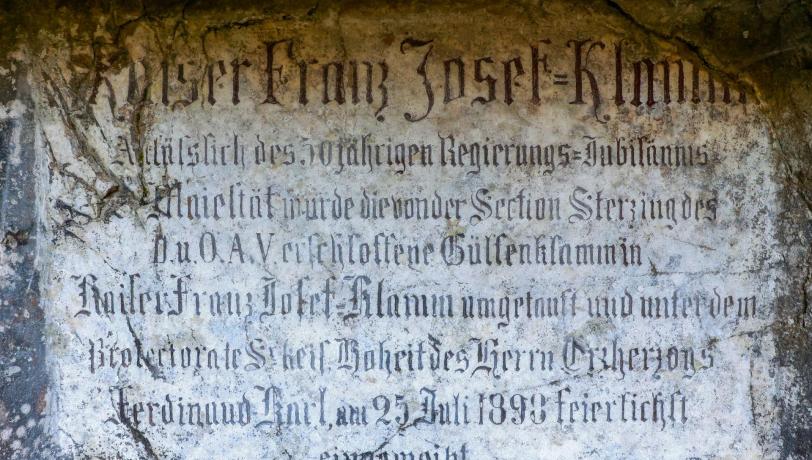 Kaiser Franz Josef=Klamm
Anlässlich des 50jährigen Regierungs=Jubiläums
Majestät wurde die von der Section Sterzing des
D.u.O.A.V erschlossene Gülfenklamm in
Kaiser Franz Josef=Klamm umgetauft und unter dem
Protectorate Sr keis. Hoheit des Herrn Erzherzogs
Ferdinand Karl, am 25 Juli 1898 feierlichst
eingeweiht